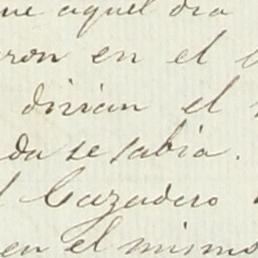 ue aquel dia
ron en el
dirian el
da se sabia.
l Cazadero
en el mismo